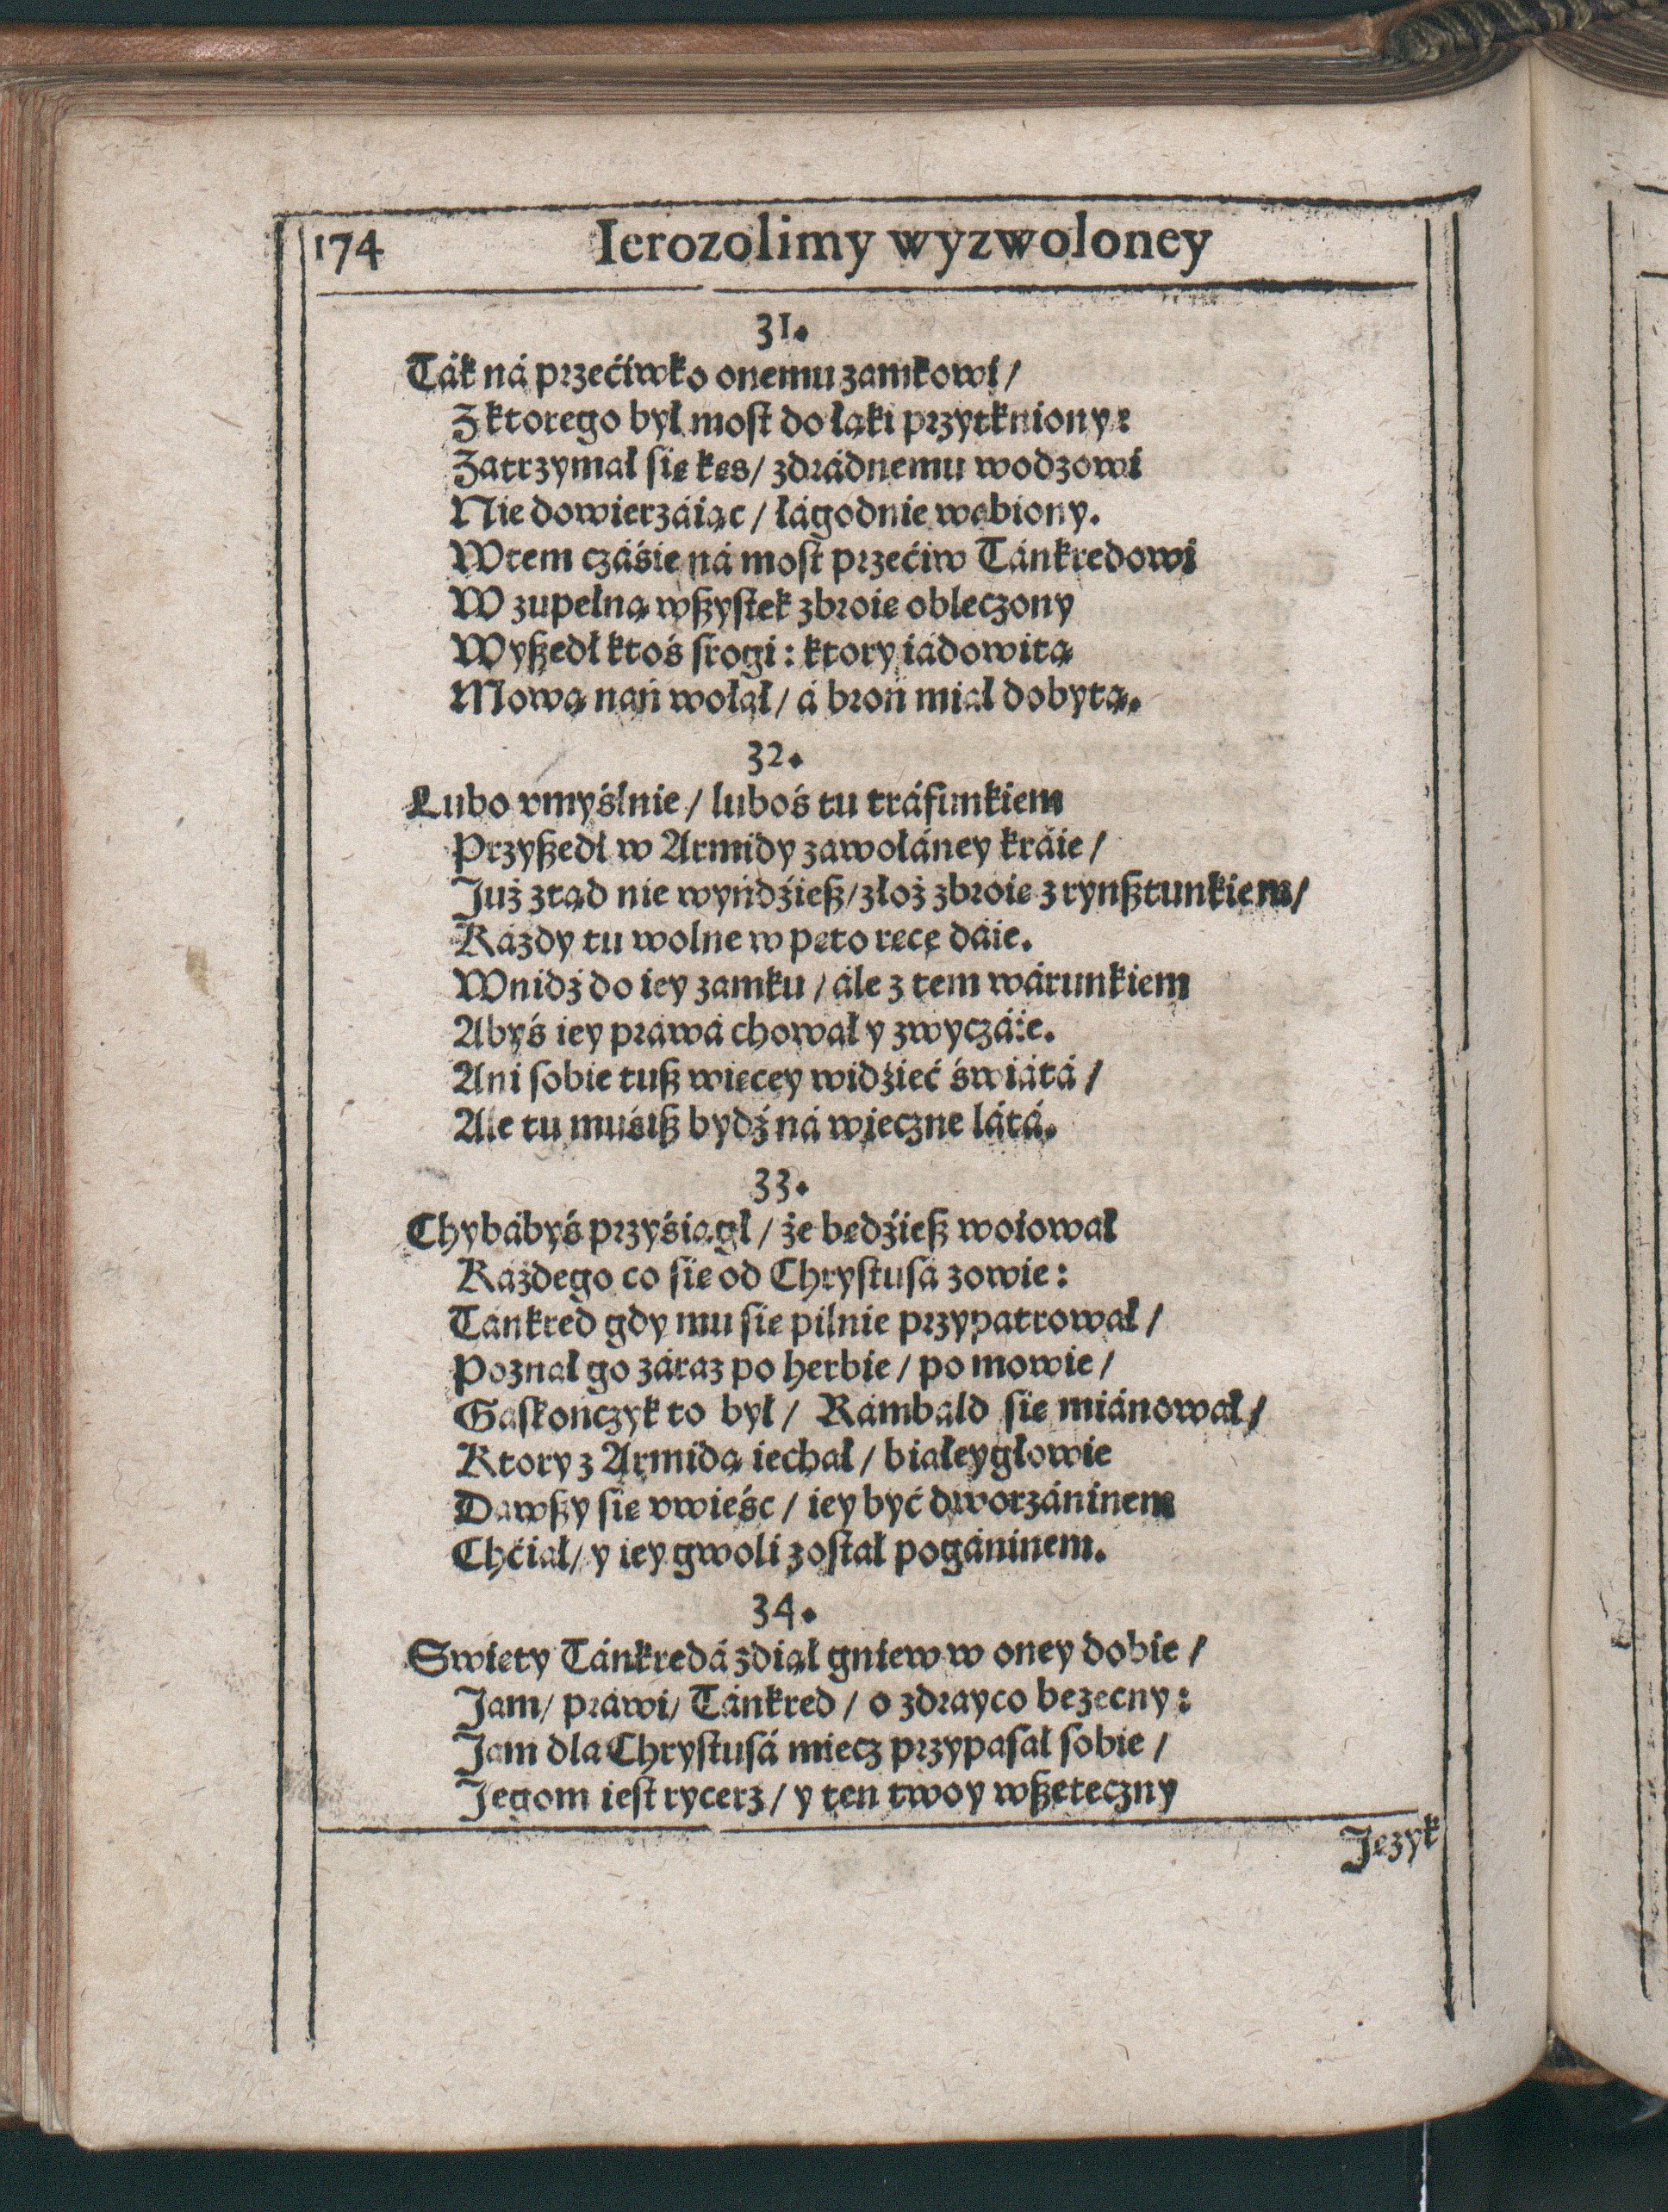 174 Ierozolimy wyzwoloney
31.
Ták ná przećiwko onemu zamkowi /
Z ktorego był most do łąki przytkniony:
Zatrzymał się kęs / zdrádnemu wodzowi
Nie dowierzáiąc / łágodnie wabiony.
W tem czáśie ná most przećiw Tánkredowi
W zupełną wszystek zbroię obleczony
Wyszedł ktoś srogi: ktory iádowitą
Mową nań wołał / á broń miał dobytą.
32.
Lubo vmyślnie / luboś tu tráfunkiem
Przyszedł w Armidy zawołáney kráie /
Już ztąd nie wyńdźiesz / złoż zbroię z rynsztunkiem /
Káżdy tu wolne w pęto ręce dáie.
Wnidź do iey zamku / ále z tem wárunkiem
Abyś iey práwá chował y zwyczáie.
Ani sobie tusz więcey widźieć świátá /
Ale tu muśisz bydź ná wieczne látá.
33.
Chybábyś przyśiągł / że będźiesz woiował
Káżdego co się od Chrystusá zowie:
Tánkred gdy mu się pilnie przypatrował /
Poznał go záraz po herbie / po mowie /
Gaskończyk to był / Rámbald się miánował /
Ktory z Armidą iechał / białeygłowie
Dawszy się vwieśc / iey być dworzáninem
Chćiał / y iey gwoli został pogáninem.
34.
Swięty Tánkredá zdiął gniew w oney dobie /
Jam / práwi / Tánkred / o zdrayco bezecny:
Jam dla Chrystusá miecz przypasał sobie /
Jegom iest rycerz / y ten twoy wszeteczny
Język